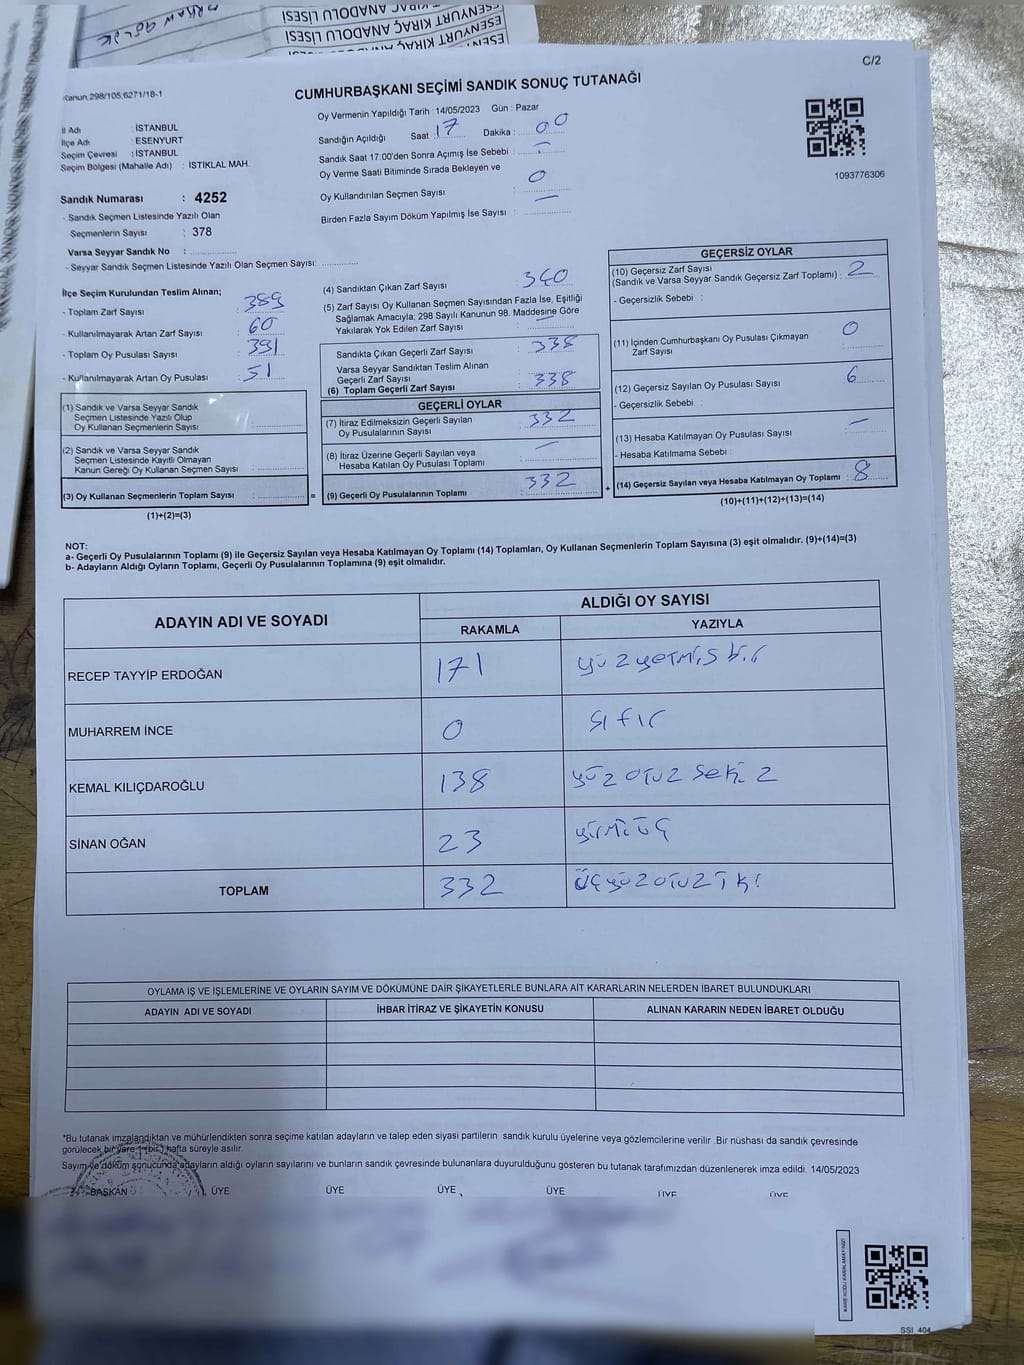 ESENYURT KIRAÇ ANADOLU LİSESİ
C/2
Kanun,298/105,6271/18-1
CUMHURBAŞKANI SEÇİMİ SANDIK SONUÇ TUTANAĞI
Oy Vermenin Yapıldığı Tarih : 14/05/2023 Gün : Pazar
İl Adı : İSTANBUL
İlçe Adı : ESENYURT
Seçim Çevresi : İSTANBUL
Seçim Bölgesi (Mahalle Adı) : İSTİKLAL MAH.
Sandığın Açıldığı Saat 17 Dakika : 00
Sandık Saat 17:00'den Sonra Açımış İse Sebebi : -
Oy Verme Saati Bitiminde Sırada Bekleyen ve
Oy Kullandırılan Seçmen Sayısı : 0
Birden Fazla Sayım Döküm Yapılmış İse Sayısı : -
1093776306
Sandık Numarası : 4252
- Sandık Seçmen Listesinde Yazılı Olan
Seçmenlerin Sayısı : 378
Varsa Seyyar Sandık No :
- Seyyar Sandık Seçmen Listesinde Yazılı Olan Seçmen Sayısı:
İlçe Seçim Kurulundan Teslim Alınan;
- Toplam Zarf Sayısı : 389
- Kullanılmayarak Artan Zarf Sayısı : 60
- Toplam Oy Pusulası Sayısı : 391
- Kullanılmayarak Artan Oy Pusulası : 51
(1) Sandık ve Varsa Seyyar Sandık
Seçmen Listesinde Yazılı Olup
Oy Kullanan Seçmenlerin Sayısı :
(2) Sandık ve Varsa Seyyar Sandık
Seçmen Listesinde Kayıtlı Olmayan
Kanun Gereği Oy Kullanan Seçmen Sayısı :
(3) Oy Kullanan Seçmenlerin Toplam Sayısı :
(1)+(2)=(3)
(4) Sandıktan Çıkan Zarf Sayısı : 340
(5) Zarf Sayısı Oy Kullanan Seçmen Sayısından Fazla İse, Eşitliği
Sağlamak Amacıyla; 298 Sayılı Kanunun 98. Maddesine Göre
Yakılarak Yok Edilen Zarf Sayısı : -
Sandıkta Çıkan Geçerli Zarf Sayısı : 338
Varsa Seyyar Sandıktan Teslim Alınan
Geçerli Zarf Sayısı :
(6) Toplam Geçerli Zarf Sayısı : 338
GEÇERLİ OYLAR
(7) İtiraz Edilmeksizin Geçerli Sayılan
Oy Pusulalarının Sayısı : 332
(8) İtiraz Üzerine Geçerli Sayılan veya
Hesaba Katılan Oy Pusulası Toplamı : -
= (9) Geçerli Oy Pusulalarının Toplamı : 332
GEÇERSİZ OYLAR
(10) Geçersiz Zarf Sayısı
(Sandık ve Varsa Seyyar Sandık Geçersiz Zarf Toplamı) : 2
- Geçersizlik Sebebi :
(11) İçinden Cumhurbaşkanı Oy Pusulası Çıkmayan
Zarf Sayısı : 0
(12) Geçersiz Sayılan Oy Pusulası Sayısı : 6
- Geçersizlik Sebebi :
(13) Hesaba Katılmayan Oy Pusulası Sayısı : -
- Hesaba Katılmama Sebebi :
+ (14) Geçersiz Sayılan veya Hesaba Katılmayan Oy Toplamı : 8
(10)+(11)+(12)+(13)=(14)
NOT:
a- Geçerli Oy Pusulalarının Toplamı (9) ile Geçersiz Sayılan veya Hesaba Katılmayan Oy Toplamı (14) Toplamları, Oy Kullanan Seçmenlerin Toplam Sayısına (3) eşit olmalıdır. (9)+(14)=(3)
b- Adayların Aldığı Oyların Toplamı, Geçerli Oy Pusulalarının Toplamına (9) eşit olmalıdır.
ADAYIN ADI VE SOYADI
ALDIĞI OY SAYISI
RAKAMLA YAZIYLA
RECEP TAYYİP ERDOĞAN 171 yüz yetmiş bir
MUHARREM İNCE 0 sıfır
KEMAL KILIÇDAROĞLU 138 yüz otuz sekiz
SİNAN OĞAN 23 yirmi üç
TOPLAM 332 üçyüz otuz iki
OYLAMA İŞ VE İŞLEMLERİNE VE OYLARIN SAYIM VE DÖKÜMÜNE DAİR ŞİKAYETLERLE BUNLARA AİT KARARLARIN NELERDEN İBARET BULUNDUKLARI
ADAYIN ADI VE SOYADI İHBAR İTİRAZ VE ŞİKAYETİN KONUSU ALINAN KARARIN NEDEN İBARET OLDUĞU
*Bu tutanak imzalandıktan ve mühürlendikten sonra seçime katılan adayların ve talep eden siyasi partilerin sandık kurulu üyelerine veya gözlemcilerine verilir .Bir nüshası da sandık çevresinde
görülecek bir yere 1 (bir) hafta süreyle asılır.
Sayım ve döküm sonucunda adayların aldığı oyların sayılarını ve bunların sandık çevresinde bulunanlara duyurulduğunu gösteren bu tutanak tarafımızdan düzenlenerek imza edildi. 14/05/2023
BAŞKAN ÜYE ÜYE ÜYE ÜYE ÜYE ÜYE
SSI_404